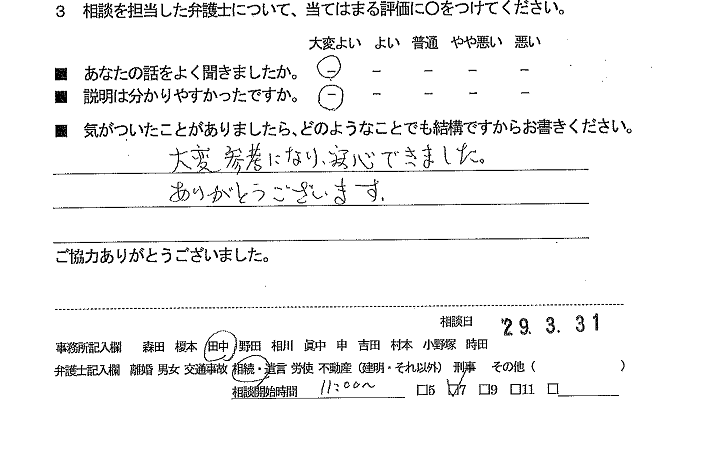 3 相談を担当した弁護士について、当てはまる評価に〇をつけてください。
大変よい よい 普通 やや悪い 悪い
■ あなたの話をよく聞きましたか。 － － － － －
■ 説明は分かりやすかったですか。 － － － － －
■ 気がついたことがありましたら、どのようなことでも結構ですからお書きください。
大変参考になり、安心できました。
ありがとうございます。
ご協力ありがとうございました。
相談日 '29. 3. 31
事務所記入欄 森田 榎本 田中 野田 相川 眞中 申 吉田 村本 小野塚 時田
弁護士記入欄 離婚 男女 交通事故 相続・遺言 労使 不動産（建明・それ以外） 刑事 その他（ ）
相談開始時間 11:00～ □5 □7 □9 □11 □